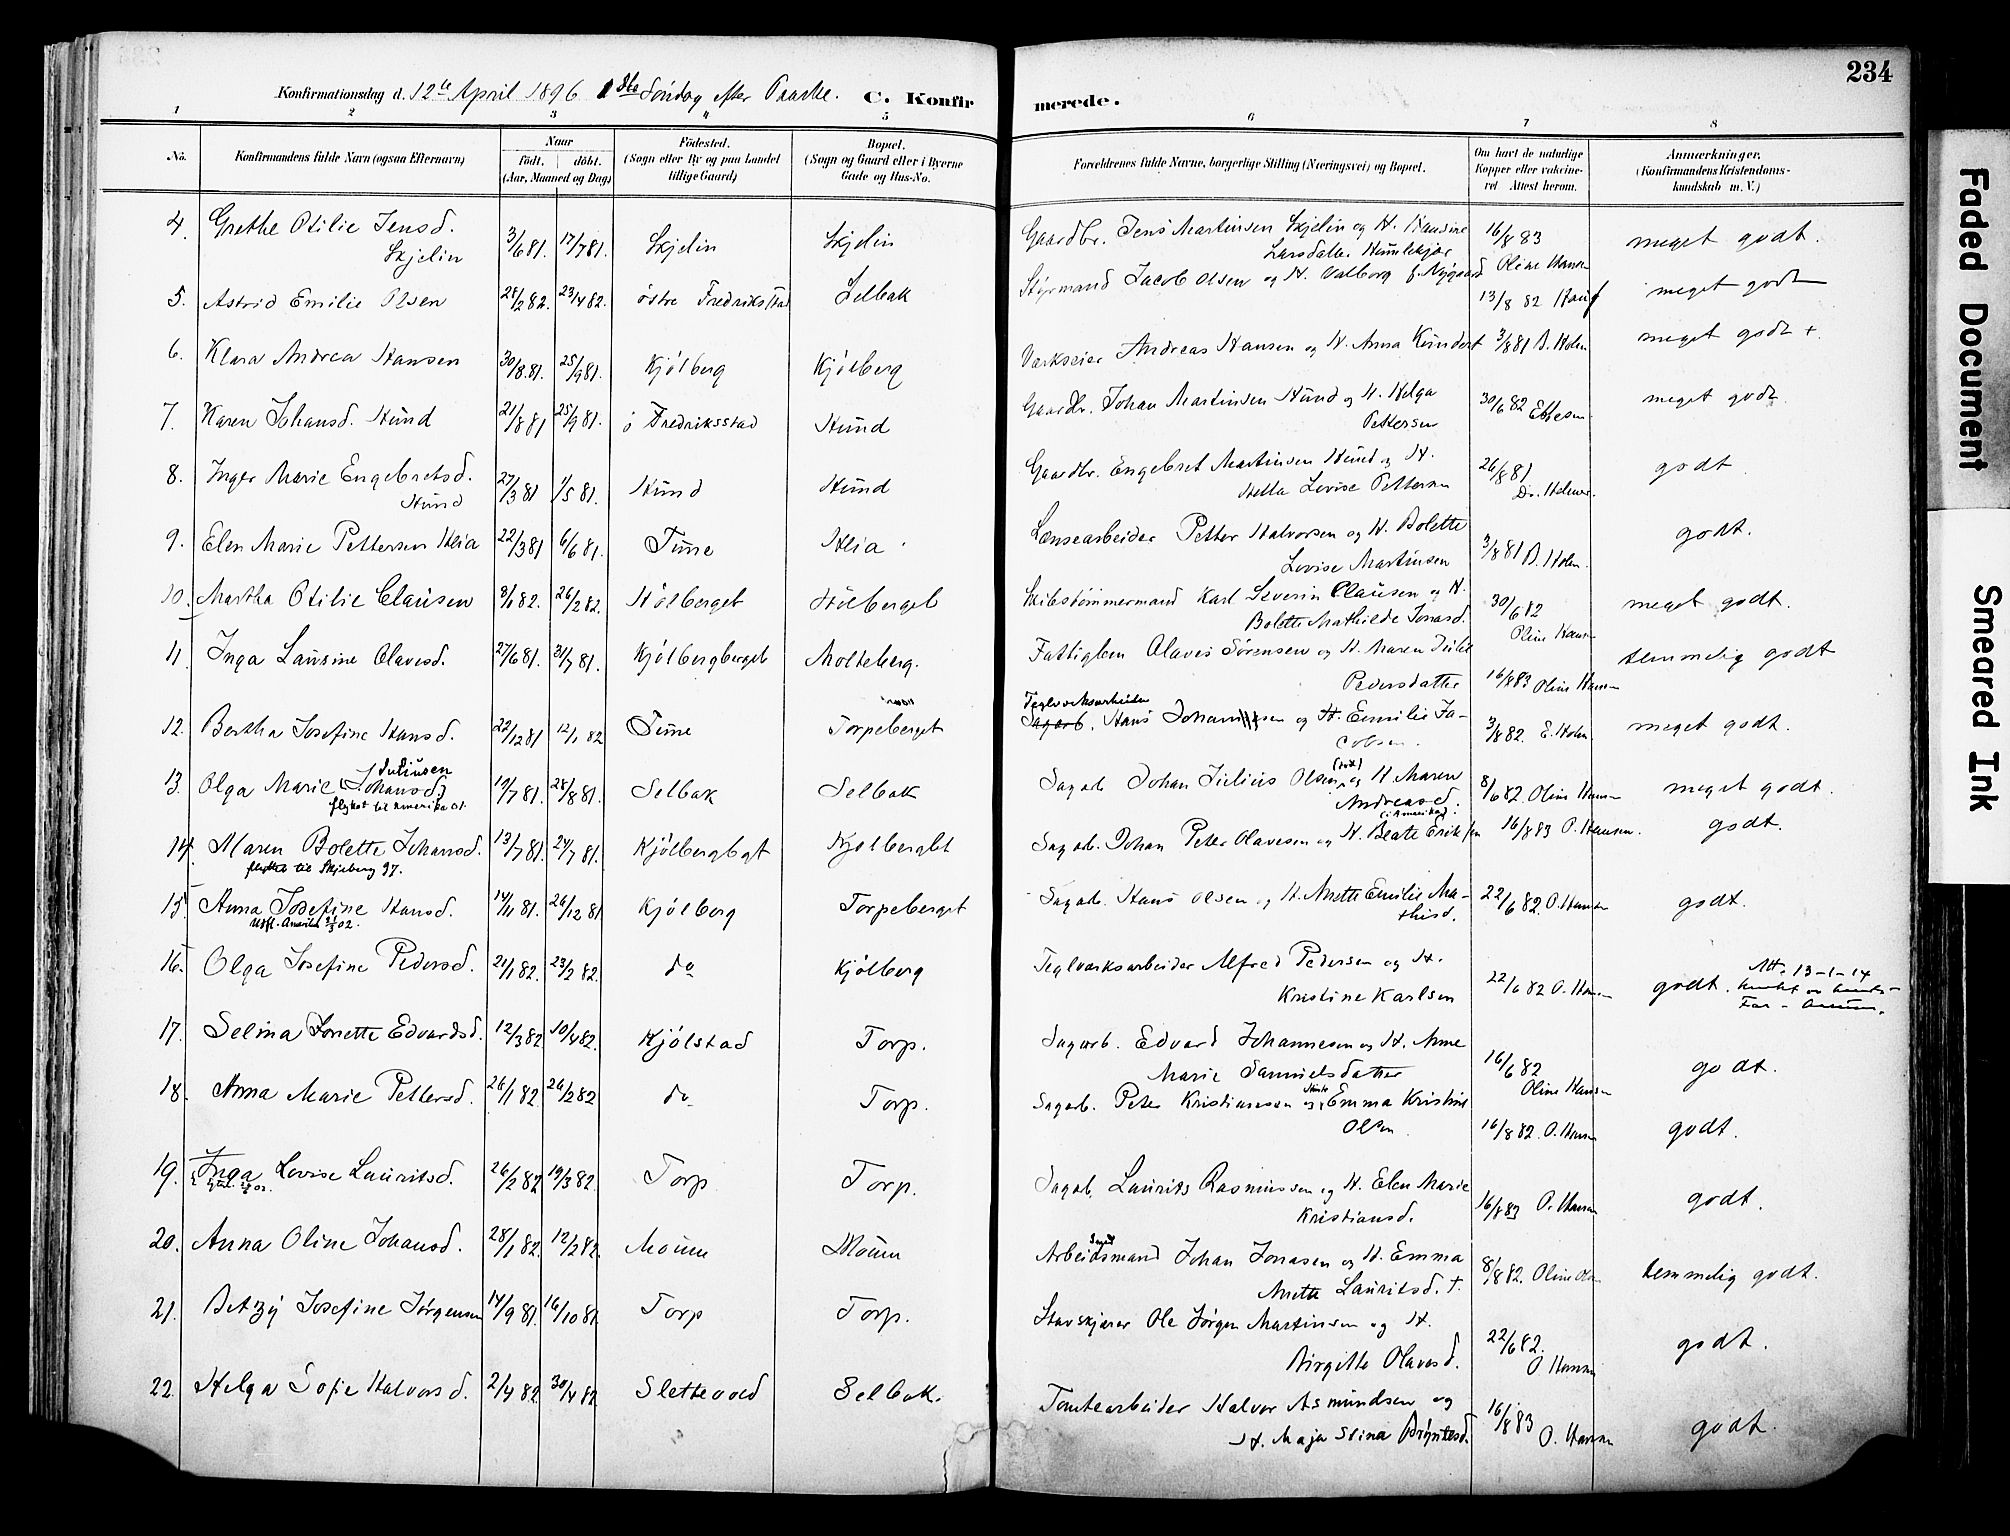 234
Konfirmationsdag d. 12te April 1896 1ste Søndag efter Paaske. C. Konfirmerede.
1 2 3 4 5 6 7 8
No. Konfirmandens fulde Navn (ogsaa Efternavn) Naar født. døbt. (Aar, Maaned og Dag) Fødested. (Sogn eller By og paa Landet tillige Gaard) Bopæl. (Sogn og Gaard eller i Byerne Gade og Hus-No. Forældrenes fulde Navne, borgerlige Stilling (Næringsvei) og Bopæl. Om havt de naturlige Kopper eller vakcineret Attest herom. Anmærkninger. (Konfirmandens Kristendomskundskab m. V.)
4. Grethe Otilie Jensd. Skjelin 3/6 81. 17/7 81. Skjelin Skjelin Gaardbr. Jens Martinsen Skjelin og H. Hansine Larsdatter Humlekjær 16/8 83 Oline Hansen meget godt.
5. Astrid Emilie Olsen 28/2 82. 23/4 82. østre Fredriksstad Selbak Styrmand Jacob Olsen og H. Valborg f. Nygaard 13/8 82 meget godt
6. Klara Andrea Hansen 30/8 81. 25/9 81. Kjølberg Kjølberg Værkseier Andreas Hansen og H. Anna 3/8 81 D. Holm meget godt +
7. Karen Johansd. Hund 21/8 81 25/9 81. ø Fredriksstad Hund Gaardbr. Johan Martinsen Hund og H. Helga Pettersen 30/6 82 meget godt.
8. Inger Marie Engebretsd. Hund 27/3 81 1/5 81. Hund Hund Gaardbr. Engebret Martinsen Hund og H. Hella Lovise Pettersen 26/8 81 godt
9. Elen Marie Pettersen Hlia 22/3 81 6/6 81. Tune Hlia Lænsearbeider Petter Halvorsen og H. Bolette Lovise Martinsen 3/8 81 D. Holm. godt.
10. Martha Otilie Clausen 8/1 82. 26/2 82. Hølberget Hølberget Skibstømmermand Karl Severin Clausen og H. Bolette Mathilde Jonasd. 30/6 82 Oline Hansen meget godt.
11. Inga Laurine Olavesd. 27/6 81. 31/7 81. Kjølbergberget Molteberg. Fattiglem Olaves Sørensen og H. Maren Pedersdatter 16/8 83 Oline Hansen temmelig godt
12. Bertha Josefine Hansd. 22/12 81 12/1 82 Tune Torpeberget Teglværksarbeider Sagarb. Hans Johansen og H. Emilie Jacobsen. 3/8 82. E. Holm. meget godt.
13. Olga Marie (Johansd.) Juliusen flyttet til Amerika 01. 19/7 81. 28/8 81. Selbak Selbak Sagarb. Johan Julius Olsen og H. Maren Andreasd. (i Amerika) 8/6 82. Oline Hansen meget godt.
14. Maren Bolette Johansd. flyttet til Skjeberg 97. 13/7 81. 24/7 81. Kjølbergbgt Kjølbergbt Sagarb. Johan Peter Olavesen og H. Beate Eriksen 16/8 83 O. Hansen. godt.
15. Anna Josefine Hansd. Utfl. Amerika 02. 14/11 81. 26/12 81 Kjølberg Torpeberget Sagarb. Hans Olsen og H. Anette Emilie Mathisd. 22/6 82. O. Hansen godt.
16. Olga Josefine Pedersd. 21/1 82. 23/2 82. do Kjølberg Teglværksarbeider Alfred Pedersen og H. Kristine Karlsen 22/6 82 O. Hansen godt. Att. 13-1-14
17. Selma Jonette Edvardsd. 12/3 82 10/4 82. Kjølstad Torp. Sagarb. Edvard Johannesen og H. Anne Marie Samuelsdatter 16/6 82 Oline Hansen godt.
18. Anna Marie Pettersd. 26/1 82. 26/2 82 do Torp. Sagarb. Peter Kristiansen og Emma Kristine Olsen 16/8 82. O. Hansen godt.
19. Inga Lovise Lauritsd. 26/2 82 19/3 82. Torp Torp. Sagarb. Laurits Rasmussen og H. Elen Marie Kristiansd. 16/8 83 O. Hansen godt.
20. Anna Oline Johansd. 28/1 82. 12/2 82. Moum Moum Arbeidsmand Johan Jonasen og H. Emma Anette Lauritsd. †. 8/8 82. Oline temmelig godt.
21. Betzy Josefine Jørgensen 14/9 81. 16/10 81. Torp Torp. Stavskjærer Ole Jørgen Martinsen og H. Birgitte Olavesd. 22/6 82. O Hansen godt.
22. Helga Sofie Halvorsd. 2/4 82. 30/4 82 Slettevold Selbak. Tomtearbeider Halvor Asmundsen og H. Maja Stina 16/8 83 O. Hansen godt.
Faded Document
Smeared Ink